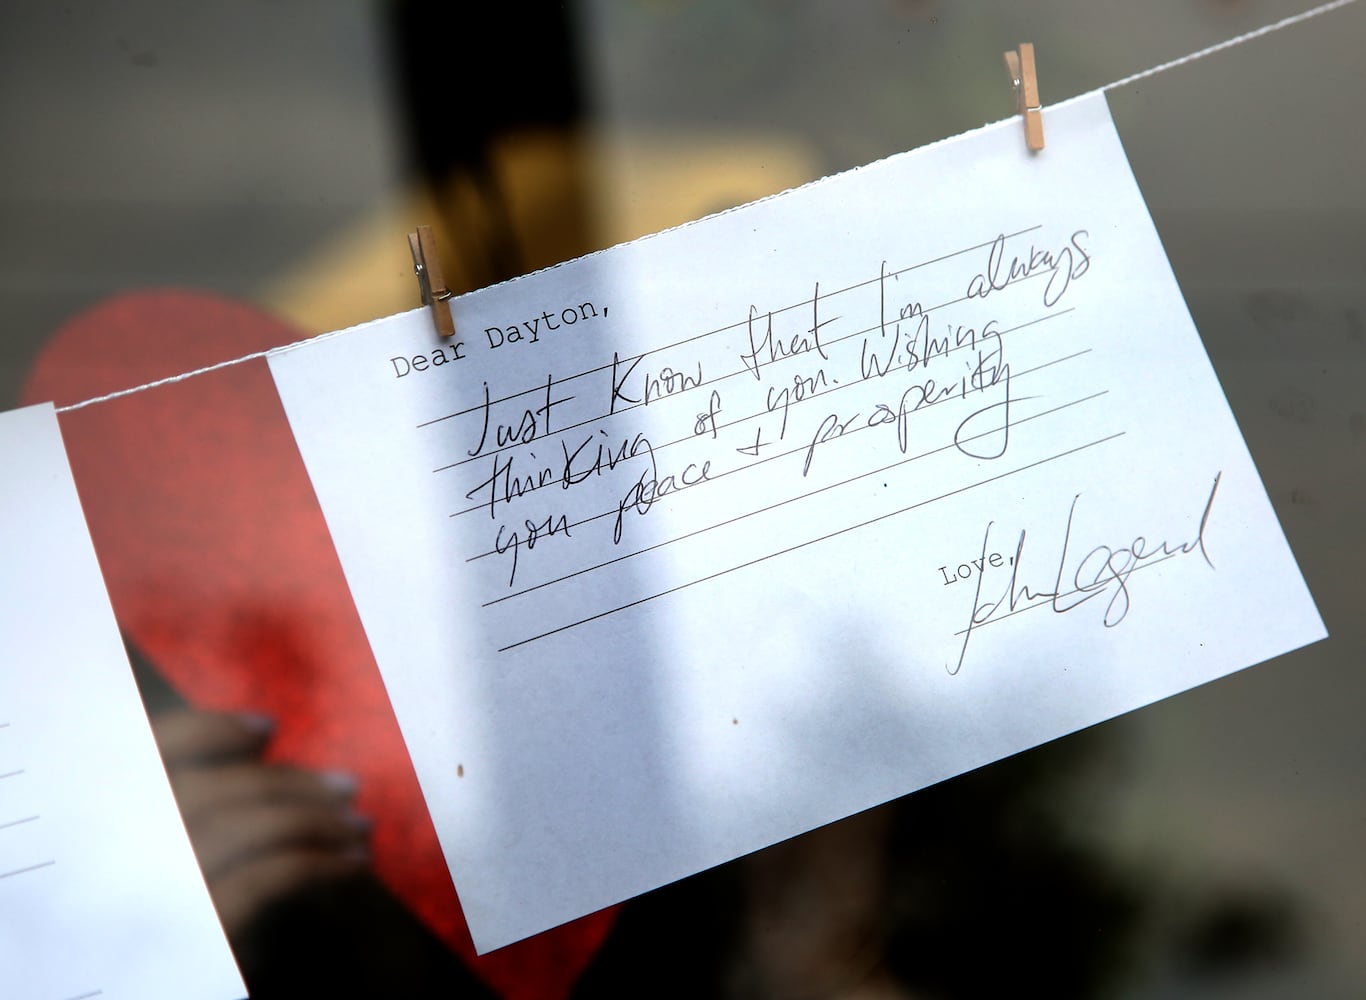 Dear Dayton,
Just know that I'm always
thinking of you. Wishing
you peace + prosperity
Love,
John Legend